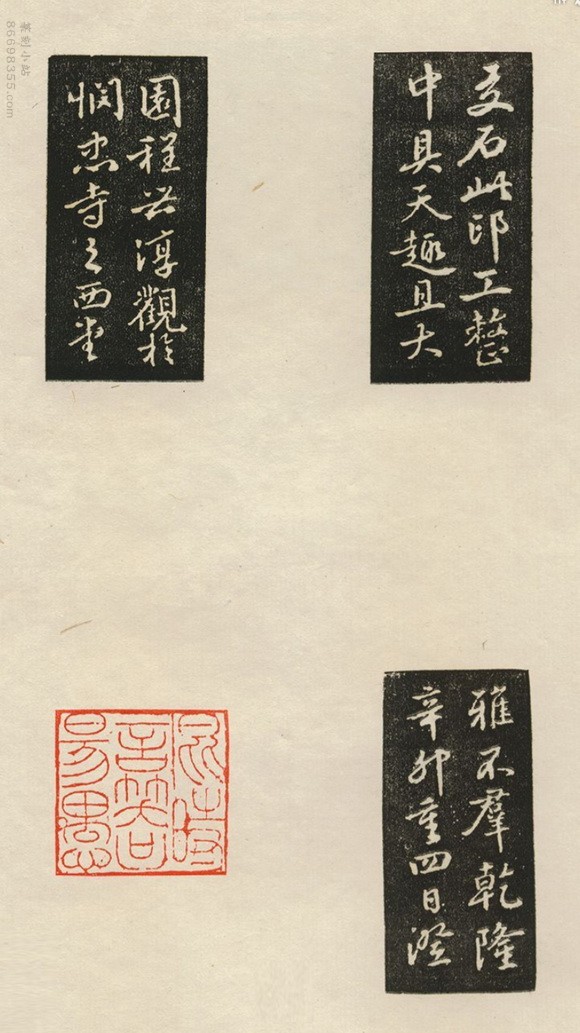 文石此印工整
中具天趣且大
雅不羣乾隆
辛卯重四日澄
園程芝淳觀於
憫忠寺之西堂
篆刻小站
86698355.com